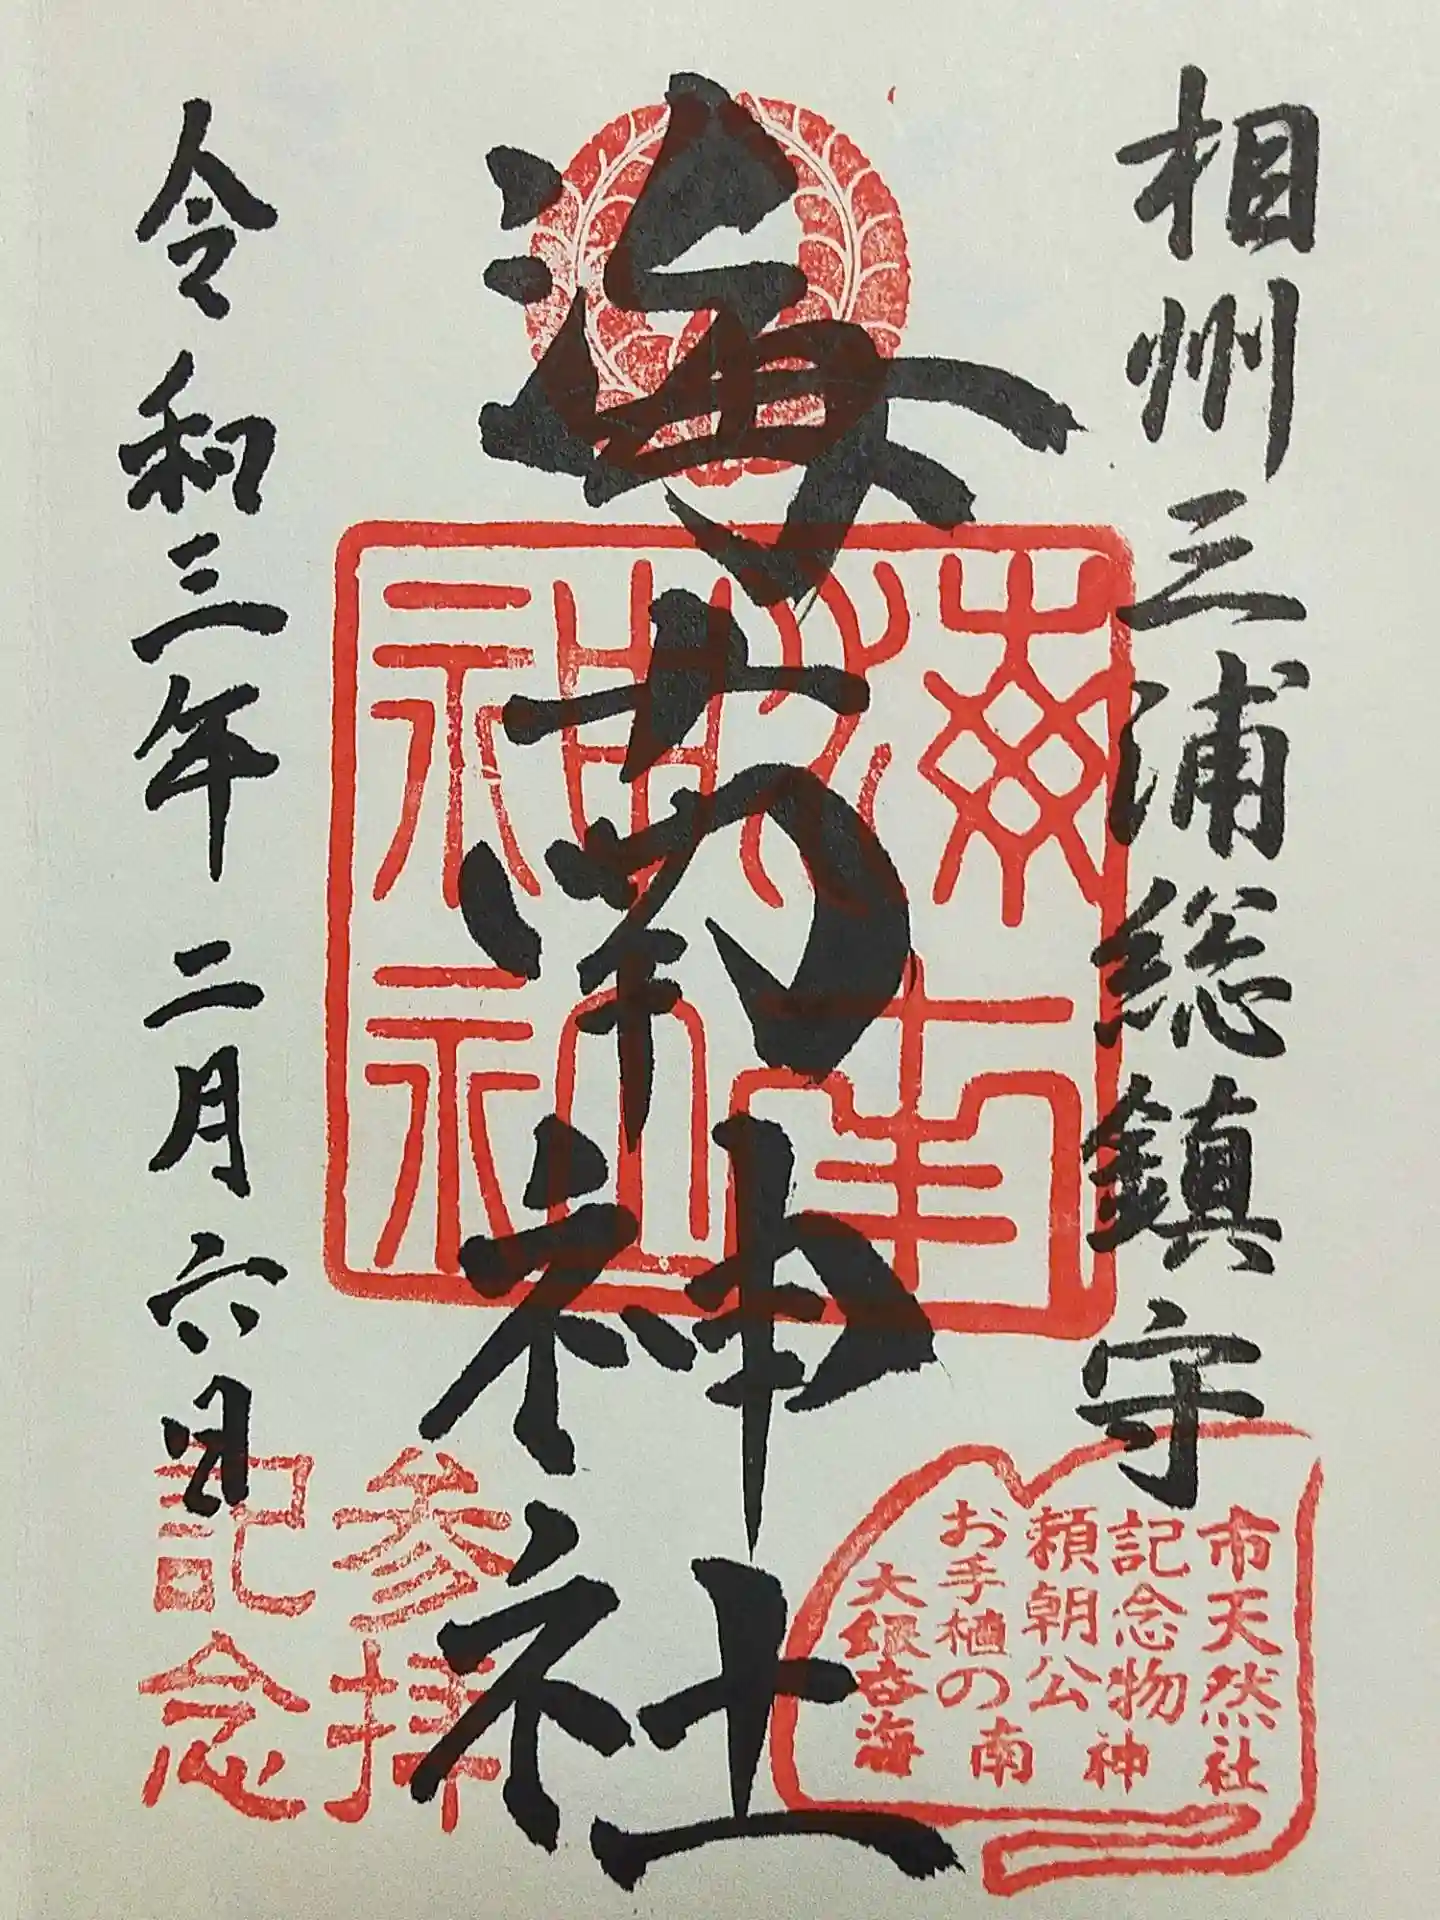 相州三浦総鎮守
海南神社
令和三年二月六日
海南神社
市天然
記念物
頼朝公
お手植の
大銀杏
海南神社
参拝
記念